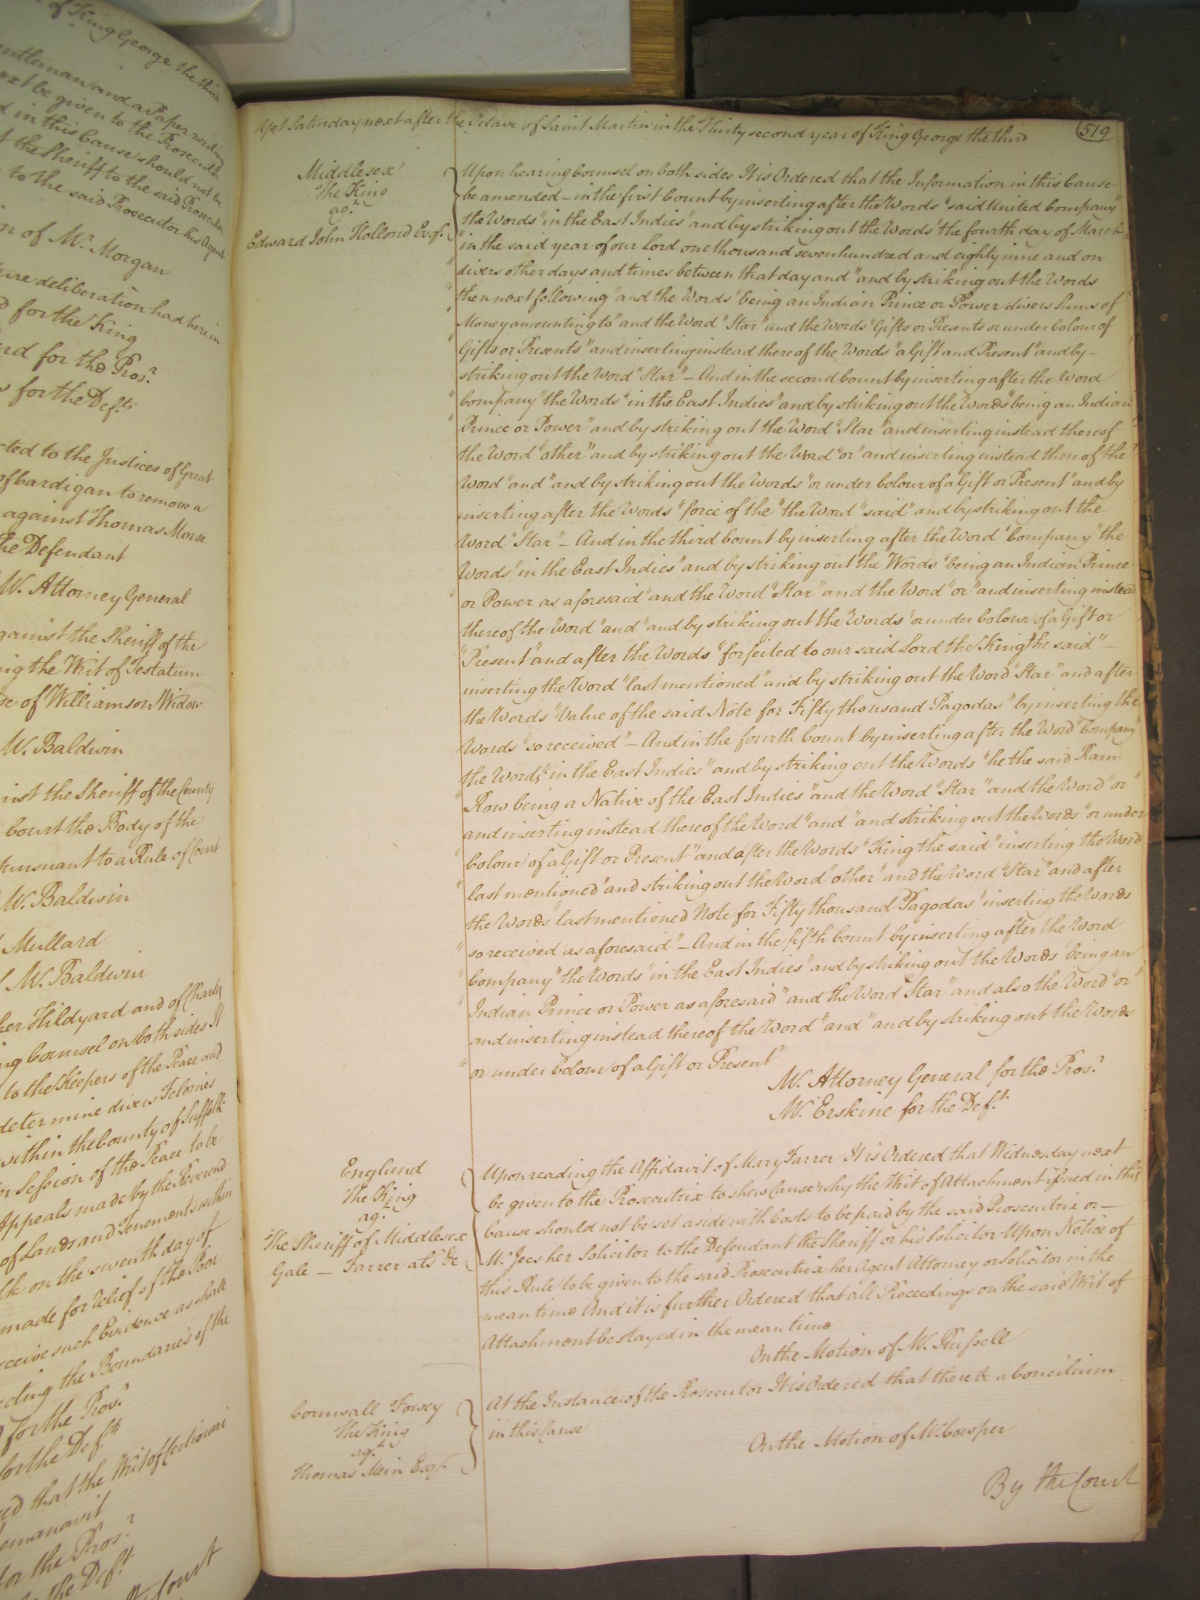 of King George the third
Gentleman and a Paper writing
next be given to the Prosecutor
d in this Cause should not be
t the Sheriff to the said Prosecutor
to the said Prosecutor his Agent
n of Mr. Morgan
ture deliberation had herein
for the King
rd for the Pros.r
for the Def.t
cted to the Justices of Great
of Cardigan to remove a
against Thomas Morse
he Defendant
Mr. Attorney General
gainst the Sheriff of the
ing the Writ of Testatum
of Williamson Widow
Mr. Baldwin
inst the Sheriff of the County
Court the Body of the
Pursuant to a Rule of Court
Mr. Baldwin
Mullard
Mr. Baldwin
her Hildyard and of Charles
ng Counsel on both sides It
to the Keepers of the Peace and
determine divers Felonies
within the County of Suffolk
r Session of the Peace to be
Appeals made by the Reverend
of Lands and Tenements within
lk on the seventh day of
made for Relief of the Poor
receive such Evidence as shall
cting the Boundaries of the
for the Pros.r
for the Def.t
ed that the Writ of Certiorari
emanavit
for the Pros.r
the Def.t
Court
Yet Saturday next after the Octave of Saint Martin in the Thirty second year of King George the third
519
Middlesex
The King
ag.t
Edward John Hollond Esq.r
Upon hearing Counsel on both sides It is Ordered that the Information in this Cause
be amended – in the first Count by inserting after the Words "said United Company"
the Words "in the East Indies" and by striking out the Words "the fourth day of March
"in the said year of our Lord one thousand seven hundred and eighty nine and on
"divers other days and times between that day and" and by striking out the Words
"then next following" and the Words "being an Indian Prince or Power divers Sums of
"Money amounting to" and the Word "Star" and the Words "Gifts or Presents or under Colour of
"Gifts or Presents" and inserting instead thereof the Words "a Gift and Present" and by –
striking out the Word "Star" – And in the second Count by inserting after the Word
"Company" the Words "in the East Indies" and by striking out the Words "being an Indian
"Prince or Power" and by striking out the Word "Star" and inserting instead thereof
the Word "other" and by striking out the Word "or" and inserting instead thereof the
Word "and" and by striking out the Words "or under Colour of a Gift or Present" and by
inserting after the Words "force of the" the Word "said" and by striking out the
Word "Star" – And in the third Count by inserting after the Word "Company" the
Words "in the East Indies" and by striking out the Words "being an Indian Prince
"or Power as aforesaid" and the Word "Star" and the Word "or" and inserting instead
thereof the Word "and" and by striking out the Words "or under Colour of a Gift or
"Present" and after the Words "forfeited to our said Lord the King the said" –
inserting the Word "last mentioned" and by striking out the Word "Star" and after
the Words "Value of the said Note for Fifty thousand Pagodas" by inserting the
Words "so received" – And in the fourth Count by inserting after the Word "Company"
the Words "in the East Indies" and by striking out the Words "he the said Ram
"Row being a Native of the East Indies" and the Word "Star" and the Word "or"
and inserting instead thereof the Word "and" and striking out the Words "or under
"Colour of a Gift or Present" and after the Words "King the said" inserting the Word
"last mentioned" and striking out the Word "other" and the Word "Star" and after
the Words "last mentioned Note for Fifty thousand Pagodas" inserting the Words
"so received as aforesaid" – And in the fifth Count by inserting after the Word
"Company" the Words "in the East Indies" and by striking out the Words "being an
"Indian Prince or Power as aforesaid" and the Word "Star" and also the Word "or"
and inserting instead thereof the Word "and" and by striking out the Words
"or under Colour of a Gift or Present"
Mr. Attorney General for the Pros.r
Mr. Erskine for the Def.t
England
The King
ag.t
The Sheriff of Middlesex
Gale – Farrer ats &c
Upon reading the Affidavit of Mary Farrer It is Ordered that Wednesday next
be given to the Prosecutrix to shew Cause why the Writ of Attachment issued in this
Cause should not be set aside with Costs to be paid by the said Prosecutrix or –
Mr. Jees her Solicitor to the Defendant the Sheriff or his Solicitor Upon Notice of
this Rule to be given to the said Prosecutrix her Agent Attorney or Solicitor in the
mean time And it is further Ordered that all Proceedings on the said Writ of
Attachment be stayed in the mean time
On the Motion of Mr. Russell
Cornwall Fowey
The King
ag.t
Thomas Mein Esq.r
At the Instance of the Prosecutor It is Ordered that there be a Concilium
in this Cause
On the Motion of Mr. Cowper
By the Court